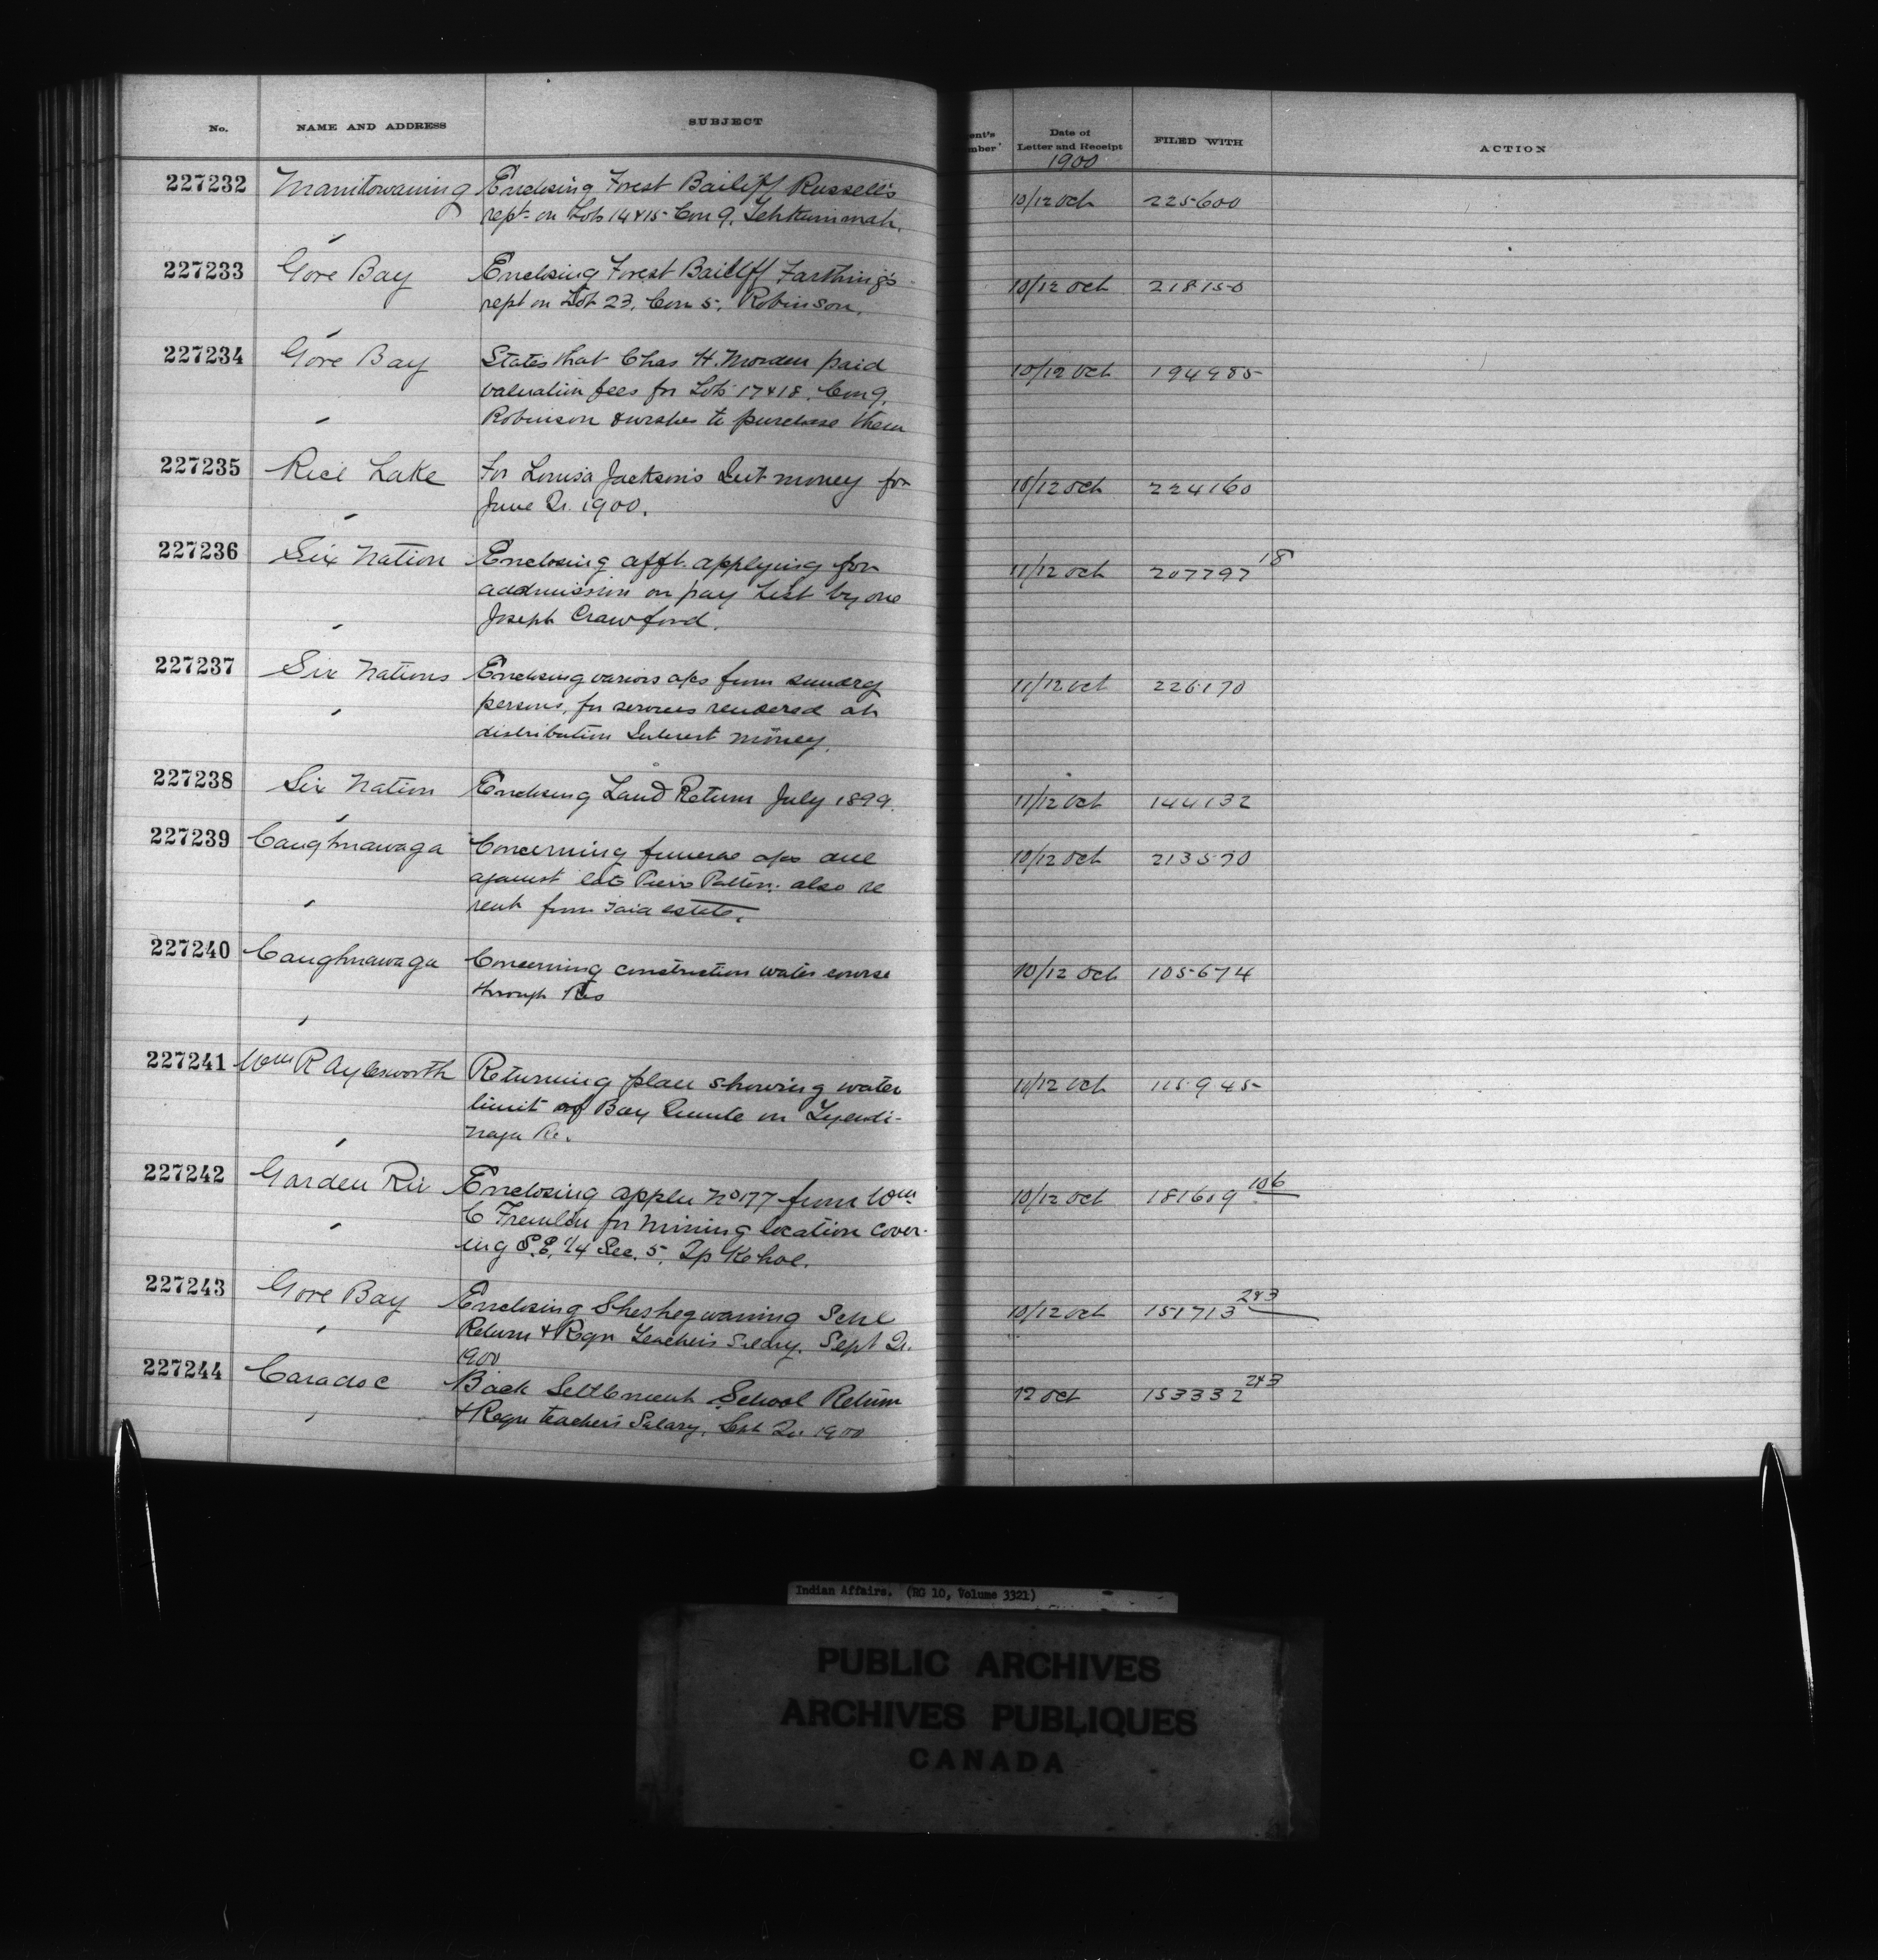 No. NAME AND ADDRESS SUBJECT ent's mber Date of Letter and Receipt FILED WITH ACTION
1900
227232 Manitowaning Enclosing Forest Bailiff Russell's 10/12 Oct 225600
rept on Lots 14 & 15 Con 9, Tehkummah.
227233 Gore Bay Enclosing Forest Bailiff Farthing's 10/12 Oct 218150
rept on Lot 23, Con 5, Robinson.
227234 Gore Bay States that Chas H. Morden paid 10/12 Oct 194985
valuation fees for Lots 17 & 18, Con 9,
Robinson & wishes to purchase them
227235 Rice Lake For Louisa Jackson's Int money for 10/12 Oct 224160
June Qr. 1900.
227236 Six Nation Enclosing afft. applying for 11/12 Oct 207797 18
addmission on pay List by one
Joseph Crawford.
227237 Six Nations Enclosing various a/cs from sundry 11/12 Oct 226170
persons, for services rendered at
distribution Interest money.
227238 Six Nation Enclosing Land Return July 1899. 11/12 Oct 144132
227239 Caughnawaga Concerning funeral a/cs due 10/12 Oct 213570
against late Patton. also re
rent from said estate.
227240 Caughnawaga Concerning construction water course 10/12 Oct 105674
through Res
227241 Wm R Aylesworth Returning plan showing water 10/12 Oct 115945
limit of Bay Quinte on Tyendi-
naga Re.
227242 Garden Riv Enclosing appln No 177 from Wm 10/12 Oct 181609 106
C for mining location cover-
ing S.E. 1/4 Sec. 5, Tp Kehoe.
227243 Gore Bay Enclosing Sheshegwaning Schl 10/12 Oct 151713 243
Return & Reqn Teacher's Salry. Sept Qr.
1900
227244 Caradoc Back Settlement School Return 12 Oct 153332 243
& Reqn teacher's Salary, Sept Qr 1900
Indian Affairs. (RG 10, Volume 3321)
PUBLIC ARCHIVES
ARCHIVES PUBLIQUES
CANADA